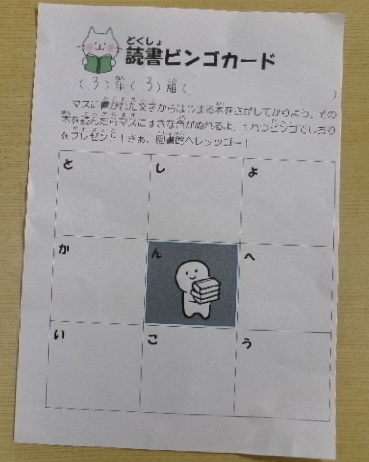 どくしょ
読書ビンゴカード
(3)年(3)組(        )
マスに書かれた文字からはじまる本をさがしてかりよう。その
本を読んだらマスにすきな色がぬれるよ。1れつビンゴでしおり
をプレゼント!さあ、図書館へレッツゴー!
と し よ
か ん へ
い こ う